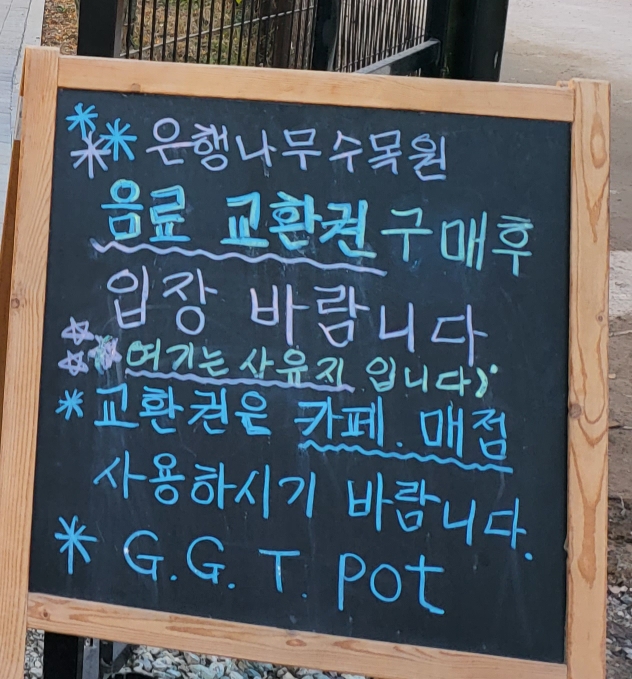 은행나무수목원
음료 교환권 구매후
입장 바랍니다
여기는 사유지 입니다
* 교환권은 카페. 매점
사용하시기 바랍니다.
* G.G.T. pot